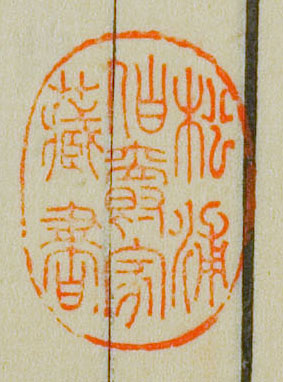 松浦
伯爵家
藏書